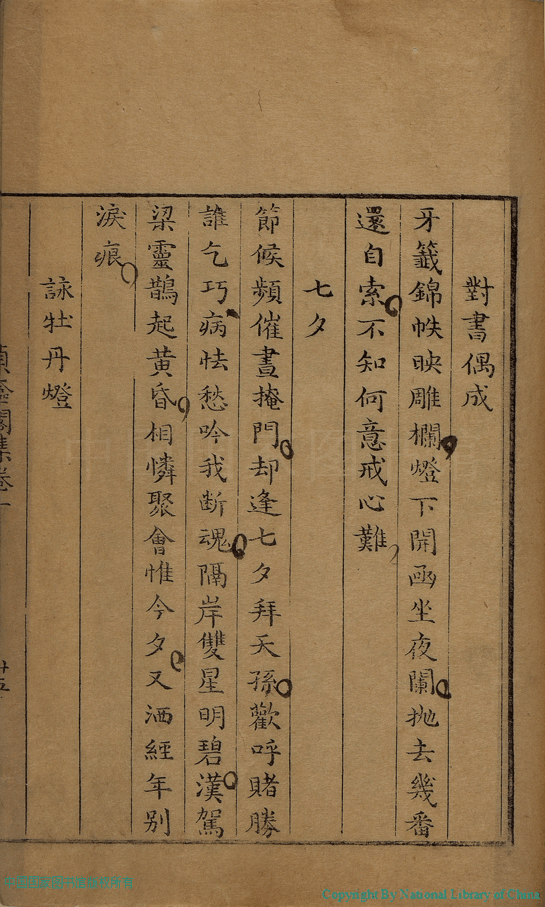 對書偶成
牙籤錦帙映雕欄燈下開函坐夜闌抛去幾番
還自索不知何意戒心難
七夕
節候頻催晝掩門却逢七夕拜天孫歡呼賭勝
誰乞巧病怯愁吟我断魂隔岸雙星明碧漢駕
梁靈鵲起黄昏相憐聚會惟今夕又洒經年别
淚痕
詠牡丹燈
集卷一
十五
Copyright By National Library of China